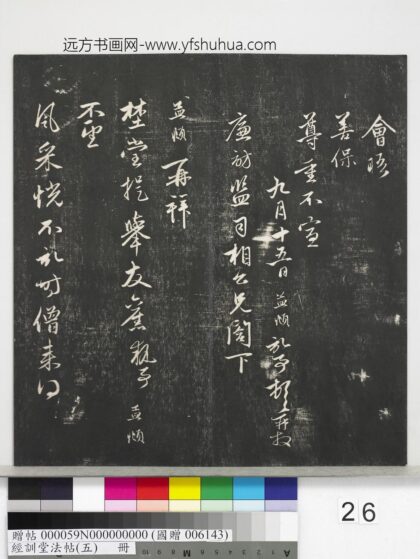 远方书画网-www.yfshuhua.com
會晤
善保
尊重不宣
九月十五日孟頫
廉訪監司相公兄閣下
孟頫再拜
提舉友舊執事孟頫
不聖
風采怳不能時僧來得
26
贈帖 000059N000000000 (國贈 006143)
經訓堂法帖(五) 冊